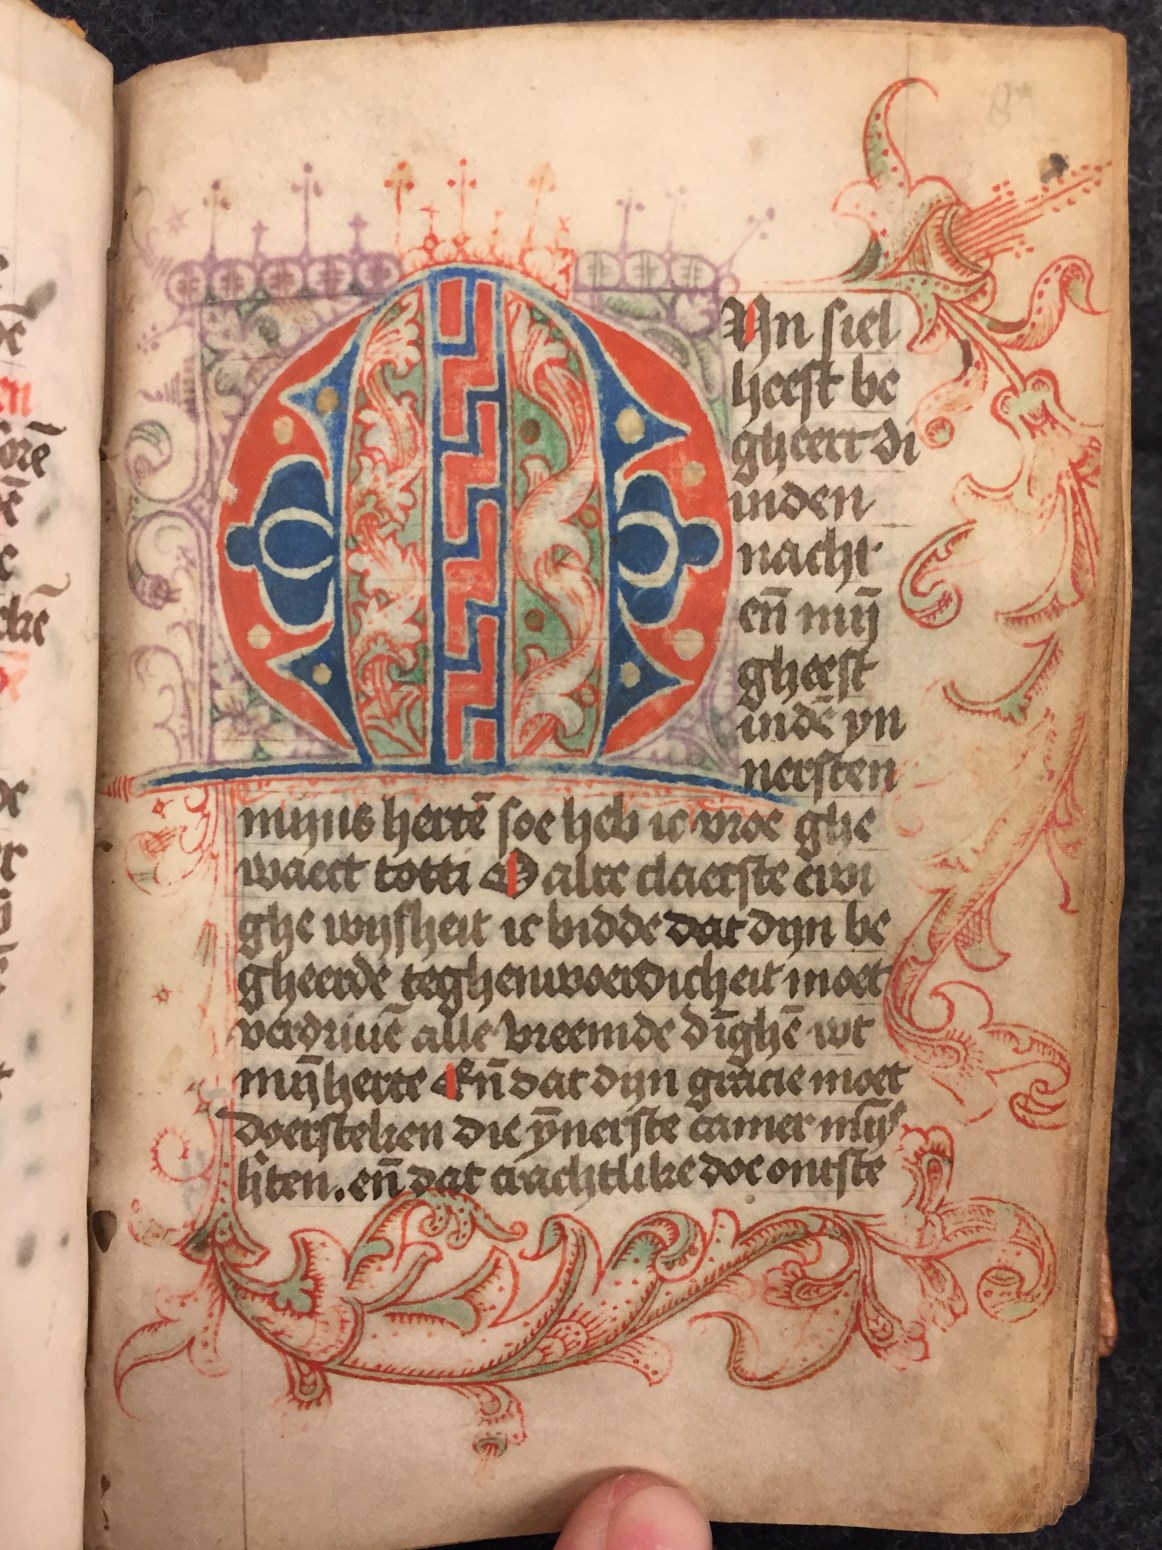 M
Yn siel
heeft be
gheert di
inden
nacht
en̄ mij̄
gheest
indē yn
nersten
mijns hertē soe heb ic vroe ghe
waect totti O alre claerste ewi
ghe wijsheit ic bidde dat dijn be
gheerde teghenwoerdicheit moet
verdriuē alle vreemde dīghē wt
mij̄ herte En̄ dat dijn gracie moet
doersteken die ȳnerste camer mijs
h̄ten. en̄ dat crachtlike doe ontste